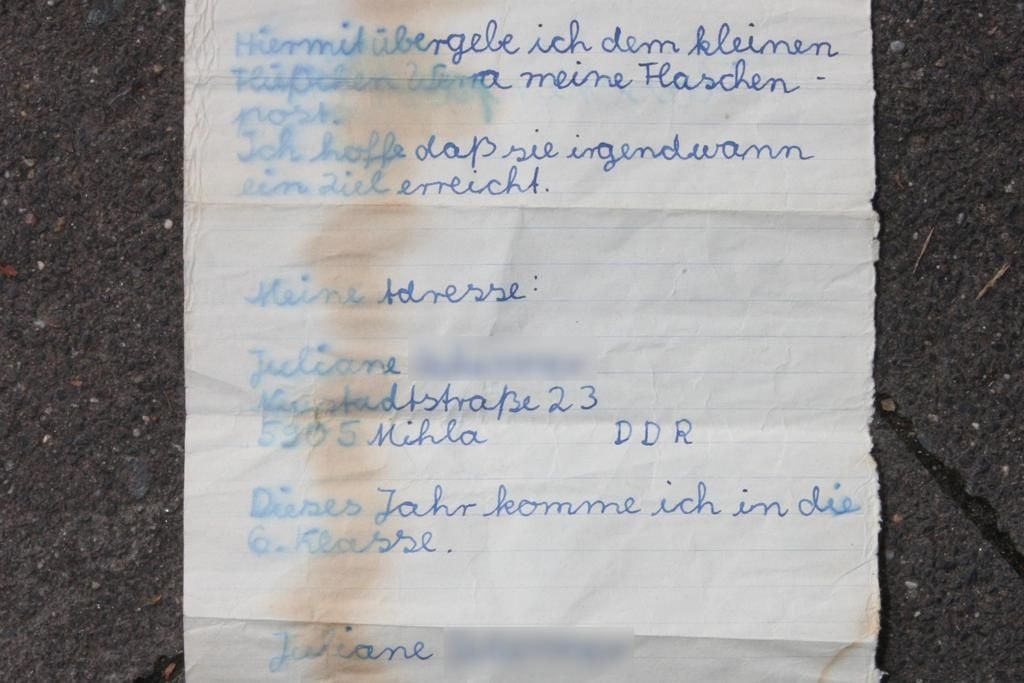 Hiermit übergebe ich dem kleinen
Flüßchen meine Flaschen-
post.
Ich hoffe daß sie irgendwann
ein Ziel erreicht.
Meine Adresse:
Juliane
23
5905 Mihla DDR
Dieses Jahr komme ich in die
6. Klasse.
Juliane